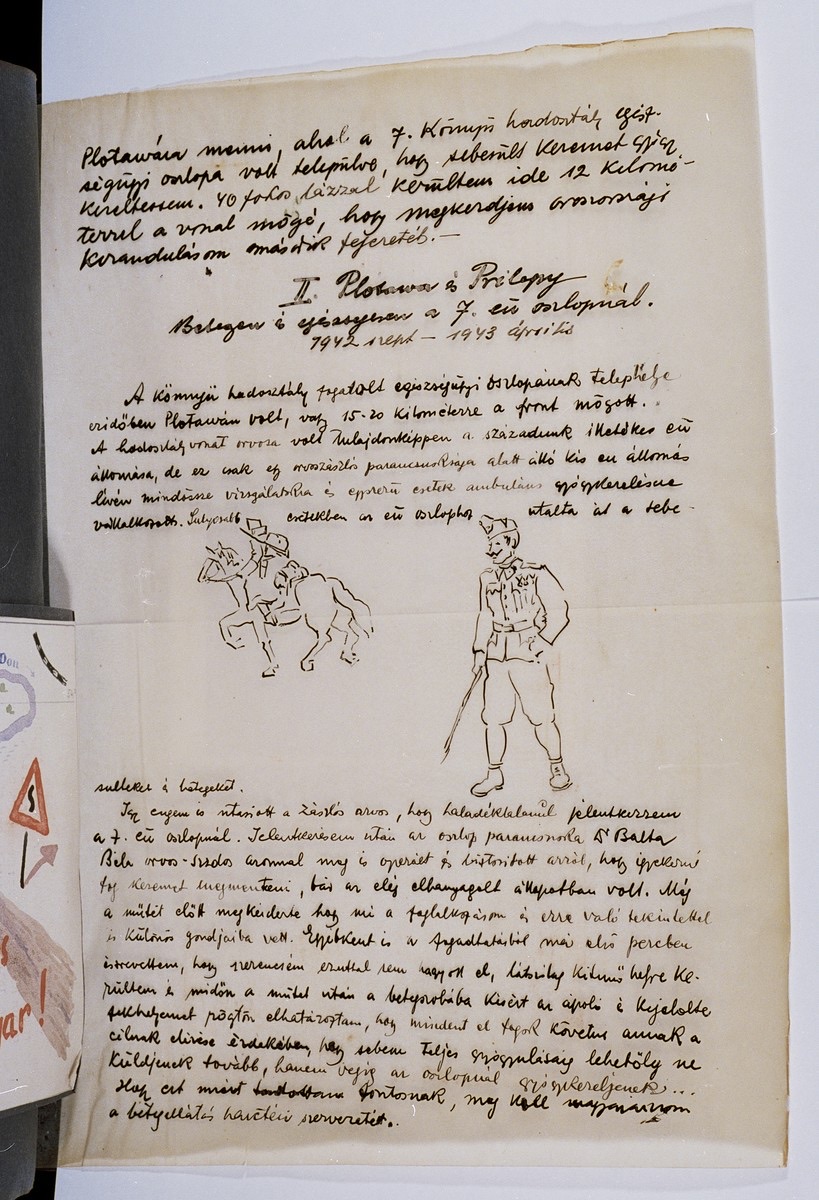 Plotawára menni, ahol a 7. Könnyű hadosztály egész-
ségügyi oszlopa volt települve, hogy sebesült kezemet gyógy
kezeltessem. 40 fokos lázzal kerültem ide 12 kilomé-
terrel a vonal mögé, hogy megkezdjem oroszországi
kirándulásom második fejezetét.—
II. Plotawa és Prilepy
Betegen és egészségesen a 7. eü oszlopnál.
1942 szept — 1943 április
A Könnyű hadosztály fogatolt egészségügyi oszlopának telephelye
ezidőben Plotawán volt, vagy 15-20 kilométerre a front mögött.
A hadosztályvonat orvosa volt tulajdonképpen a századunk illetékes eü
állomása, de ez csak egy orvoszászlós parancsnoksága alatt álló kis eü állomás
lévén mindössze vizsgálatokra és egyszerű esetek ambuláns gyógykezelésére
vállalkozott. Súlyosabb esetekben az eü oszlophoz utalta át a sebe-
sülteket és betegeket.
Így engem is utasított a zászlós orvos, hogy haladéktalanul jelentkezzem
a 7. eü oszlopnál. Jelentkezésem után az oszlop parancsnoka Dr Balta
Béla orvos-szds azonnal meg is operált és biztosított arról, hogy igyekezni
fog kezemet megmenteni, bár az elég elhanyagolt állapotban volt. Még
a műtét előtt megkérdezte hogy mi a foglalkozásom és erre való tekintettel
is különös gondjaiba vett. Egyébként is a fogadtatásból már első percben
észrevettem, hogy szerencsém ezúttal sem hagyott el, látszólag kitünő helyre ke-
rültem és midőn a műtét után a betegszobába kisért az ápoló és kijelölte
fekhelyemet rögtön elhatároztam, hogy mindent el fogok követni annak a
célnak elérése érdekében, hogy sebem teljes gyógyulásáig lehetőleg ne
küldjenek tovább, hanem végig az oszlopnál gyógykezeljenek...
Hogy ezt miért tartottam fontosnak, meg kell magyaráznom
a betegellátás harctéri szervezetét..
Don
s
ar!